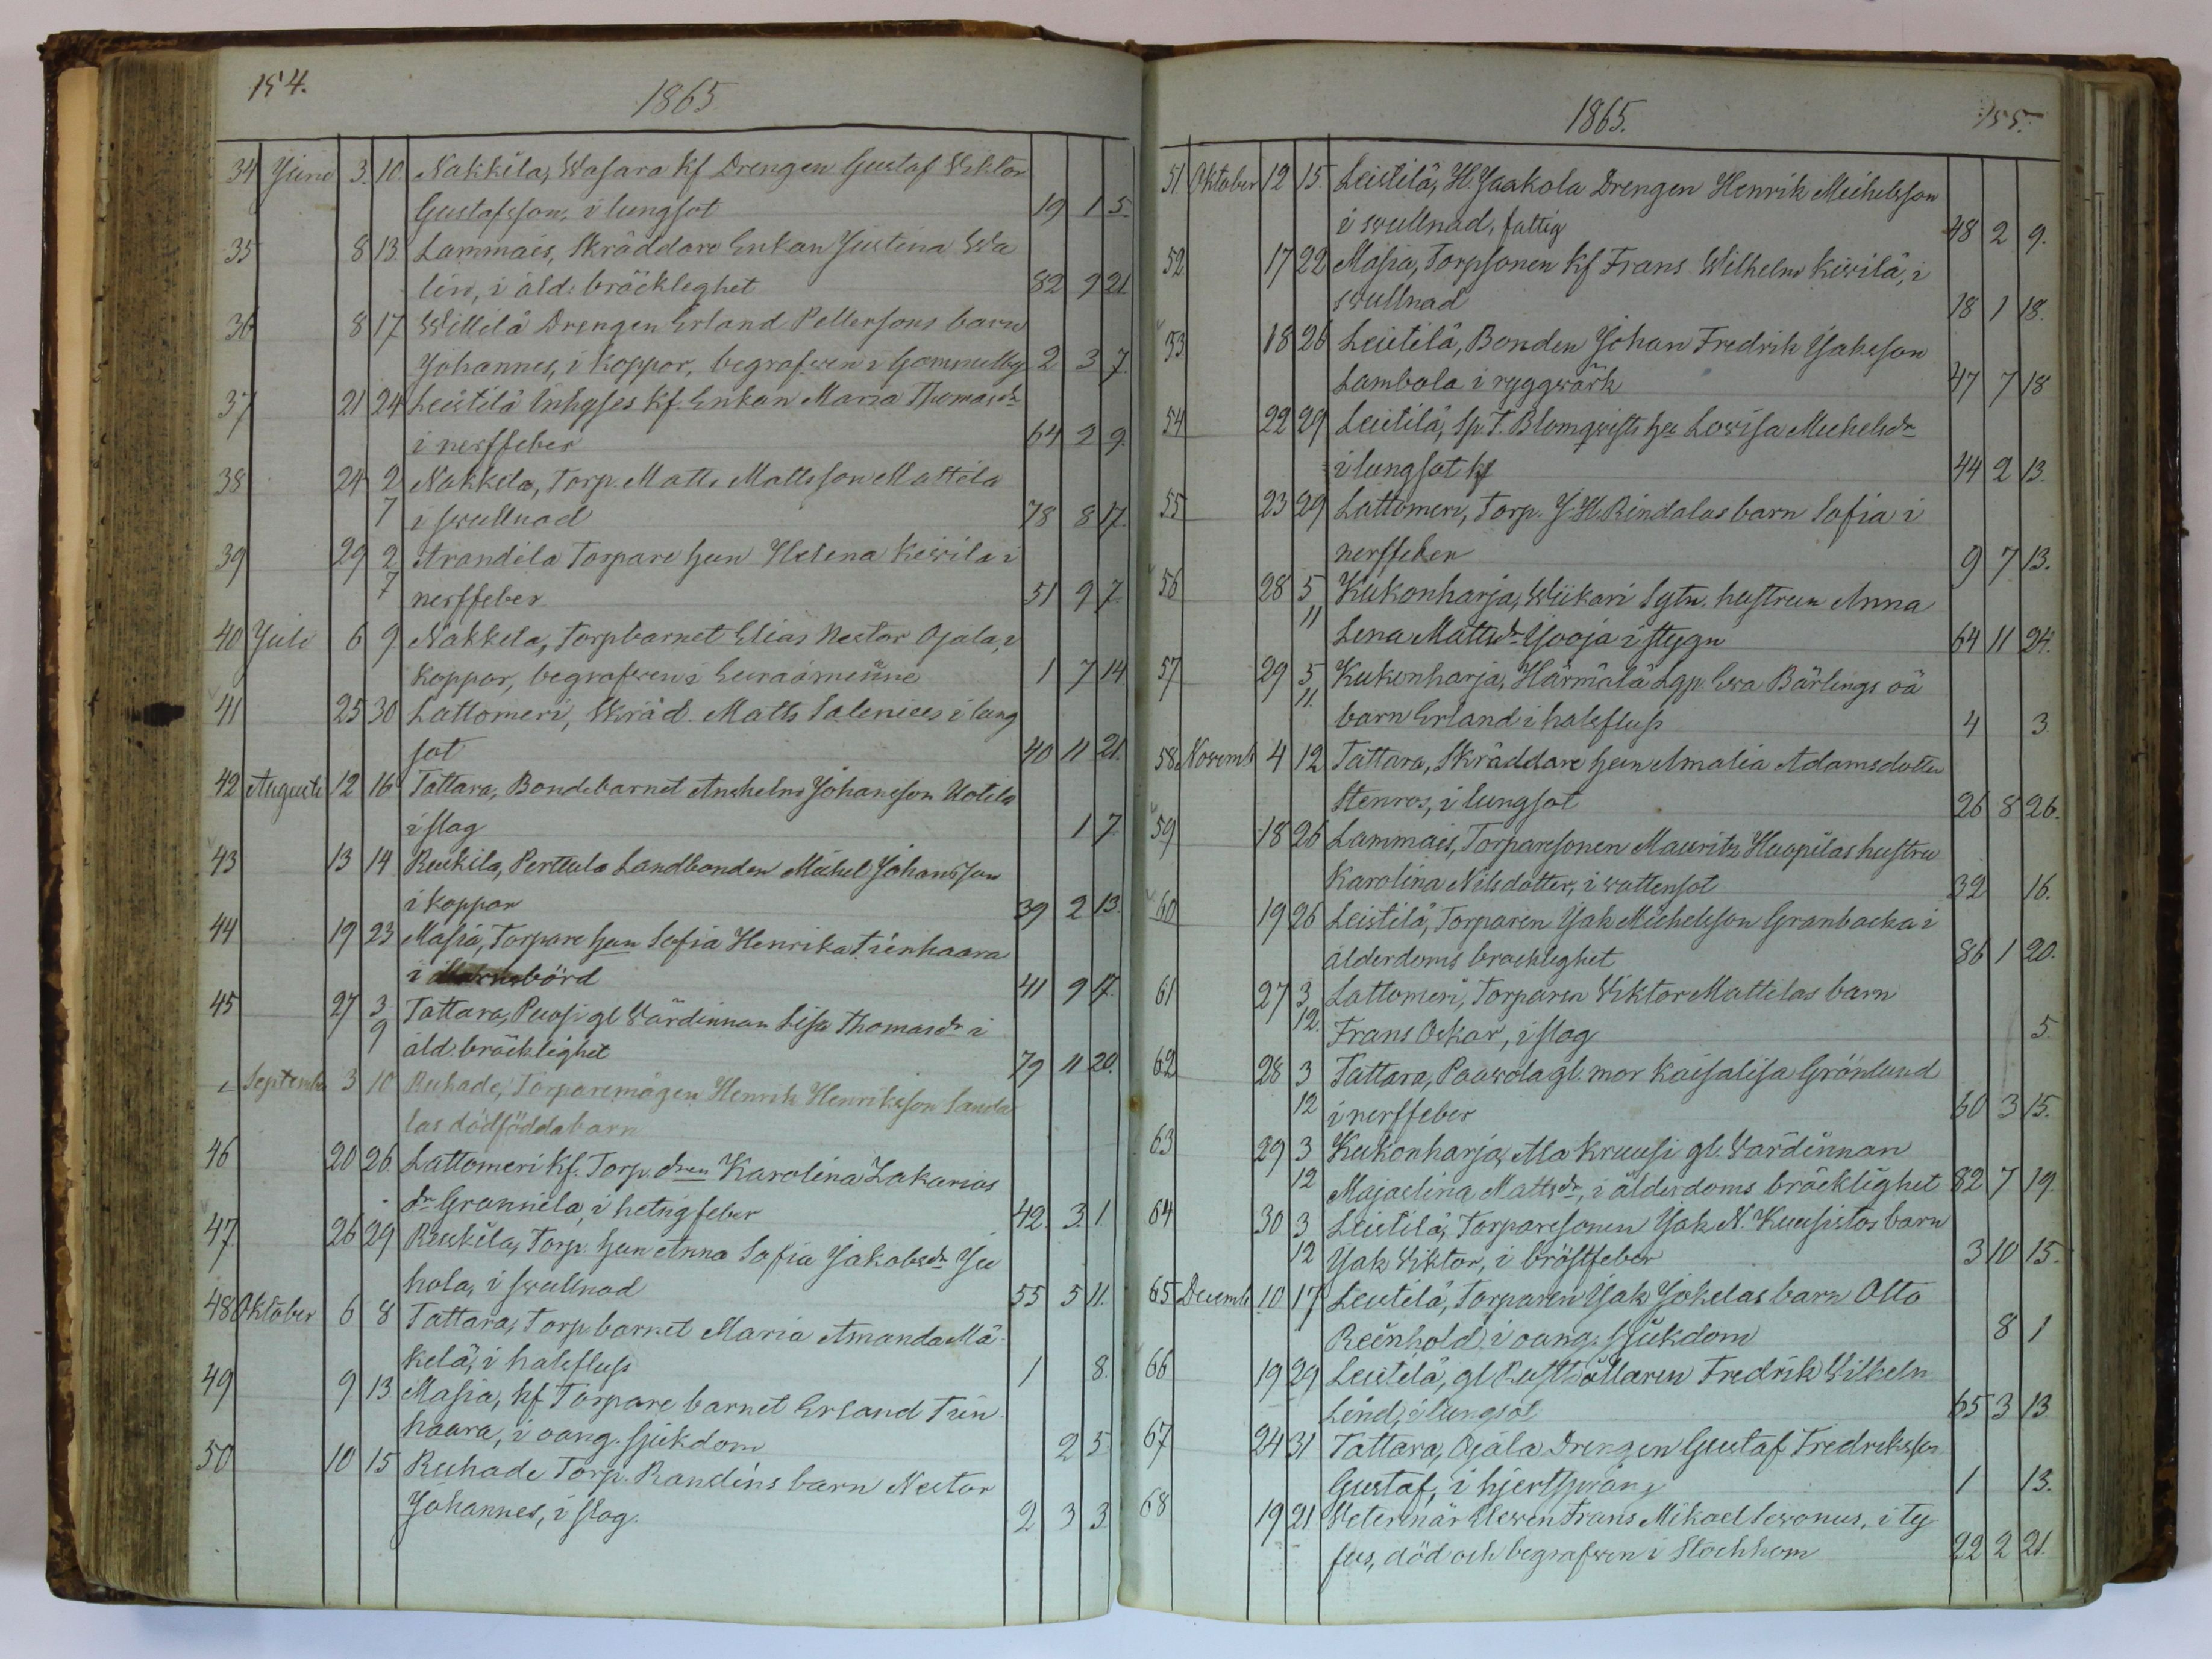 154.
1865
34 Juni 3. 10. Nakkila, Wasara kf Drengen Gustaf Wiktor
Gustafsson, i lungsot 19 1 5.
35 8 13. Lammais, Skräddare Enkan Justina Wa
lin, i åld. bräcklighet 82 9 21
36 8 17 Willilä Drengen Erland Pettersons barn
Johannes, i koppor, begrafwen i Gammelby 2 3 7.
37 21 24 Leistilä Inhyses kf. Enkan Maria Thomasdr
i nerffeber 64 2 9.
38 24 2 Nakkila, Torp. Matts Mattsson Mattila
7 i swullnad 78 8 17.
39 29 2 Arandila Torpare hun Helena Kiwila i
7 nerffeber 51 9 7.
40 Juli 6 9 Nakkila, Torpbarnet Elias Nestor Ojala, i
koppor, begrafwen i Euraåminne 1 7 14
41 25 30 Lattomeri, Skräd. Matts Salenius i lung
sot 40 11 21.
42 Augusti 12 16 Tattara, Bondebarnet Anshelm Johansson Uotila
i slag 1 7.
43 13 14 Ruskila, Perttula Landbonden Michel Johansson
i koppor 39 2 13.
44 19 23 Masia, Torpare hun Sofia Henrika Tienhaara
i barnsbörd 41 9 17.
45 27 3 Tattara, Puosi gl Wärdinnan Lisa Thomasdr i
9 åld. bräcklighet 79 11 20.
- Septemb. 3 10 Ruhade, Torparemågen Henrik Henriksson Sanda
las dödfödda barn
46 20 26 Lattomeri kf. Torp. dren Karolina Zakarias
dr Grannila, i hetsigfeber 42. 3. 1.
47 26 29 Ruskila, Torp. hun Anna Sofia Jakobsdr Ju
hola, i swullnad 55 5 11.
48 Oktober 6 8 Tattara, Torpbarnet Maria Amanda Mä
kelä, i halsfluss 1 8.
49 9 13 Masia, kf Torpare barnet Erland Tien
haara, i oang. sjukdom 2 5
50 10 15 Ruhade Torp. Randins barn Nestor
Johannes, i slag. 2 3 3
1865.
155.
51 Oktober 12 15. Leistilä, H. Jaakola Drengen Henrik Michelsson
i swullnad, fattig 48 2 9.
52 17 22 Masia, Torpsonen kf Frans Wilhelm Kiwilä, i
swullnad 18 1 18.
53 18 26 Leistilä, Bonden Johan Fredrik Jaksson
Lambola i ryggwärk 47 7 18
54 22 29 Leistilä, Sp. T. Blomqwists hu Lowisa Michelsdr
i lungsot kf 44 2 13.
55 23 29 Lattomeri, Torp. J. H. Rindalas barn Sofia i
nerffeber 9 7 13.
56 28 5 Kukonharja, Wiikari Sytn. hustrun Anna
11 Lena Mattsdr Jooja i stygn 64 11 24.
57 29 5 Kukonharja, Härmälä Lgp. Ewa Bärlings oä
11. barn Erland i halsfluss 4 3
58 Novemb 4 12 Tattara, Skräddare hun Amalia Adamsdotter
Stenros, i lungsot 26 8 26.
59 18 26 Lammais, Torparesonen Mauritz Huopilas hustru
Karolina Nilsdotter, i wattensot 32 16.
60 19 26 Leistilä, Torparen Jak Michelsson Granbacka i
ålderdoms bräcklighet 86 1 20.
61 27 3 Lattomeri, Torparen Wiktor Mattilas barn
12. Frans Oskar, i slag 5
62 28 3 Tattara, Paawola gl. mor Kaisalisa Grönlund
12 i nerffeber 60 3 15.
63 29 3 Kukonharja, Ala Kruusi gl. Wärdinnan
12 Majaelina Mattsdr, i ålderdoms bräcklighet 82 7 19.
64 30 3 Leistilä, Torparesonen Jak N. Kuusistos barn
12 Jak Wiktor, i bröstfeber 3 10 15.
65 Decemb 10 17 Leistilä, Torparen Jak Jokelas barn Otto
Reinhold, i oang. sjukdom 8 1
66 19 29 Leistilä, gl Rusthållaren Fredrik Wilhelm
Lind, i lungsot 65 3 13
67 24 31 Tattara, Ojala Drengen Gustaf Fredriksson
Gustaf, i hjertsprång 1 13.
68 19 21 Veterinär Elewen Frans Mikael Lewonus, i ty
fus, död och begrafwen i Stockhom 22 2 21.